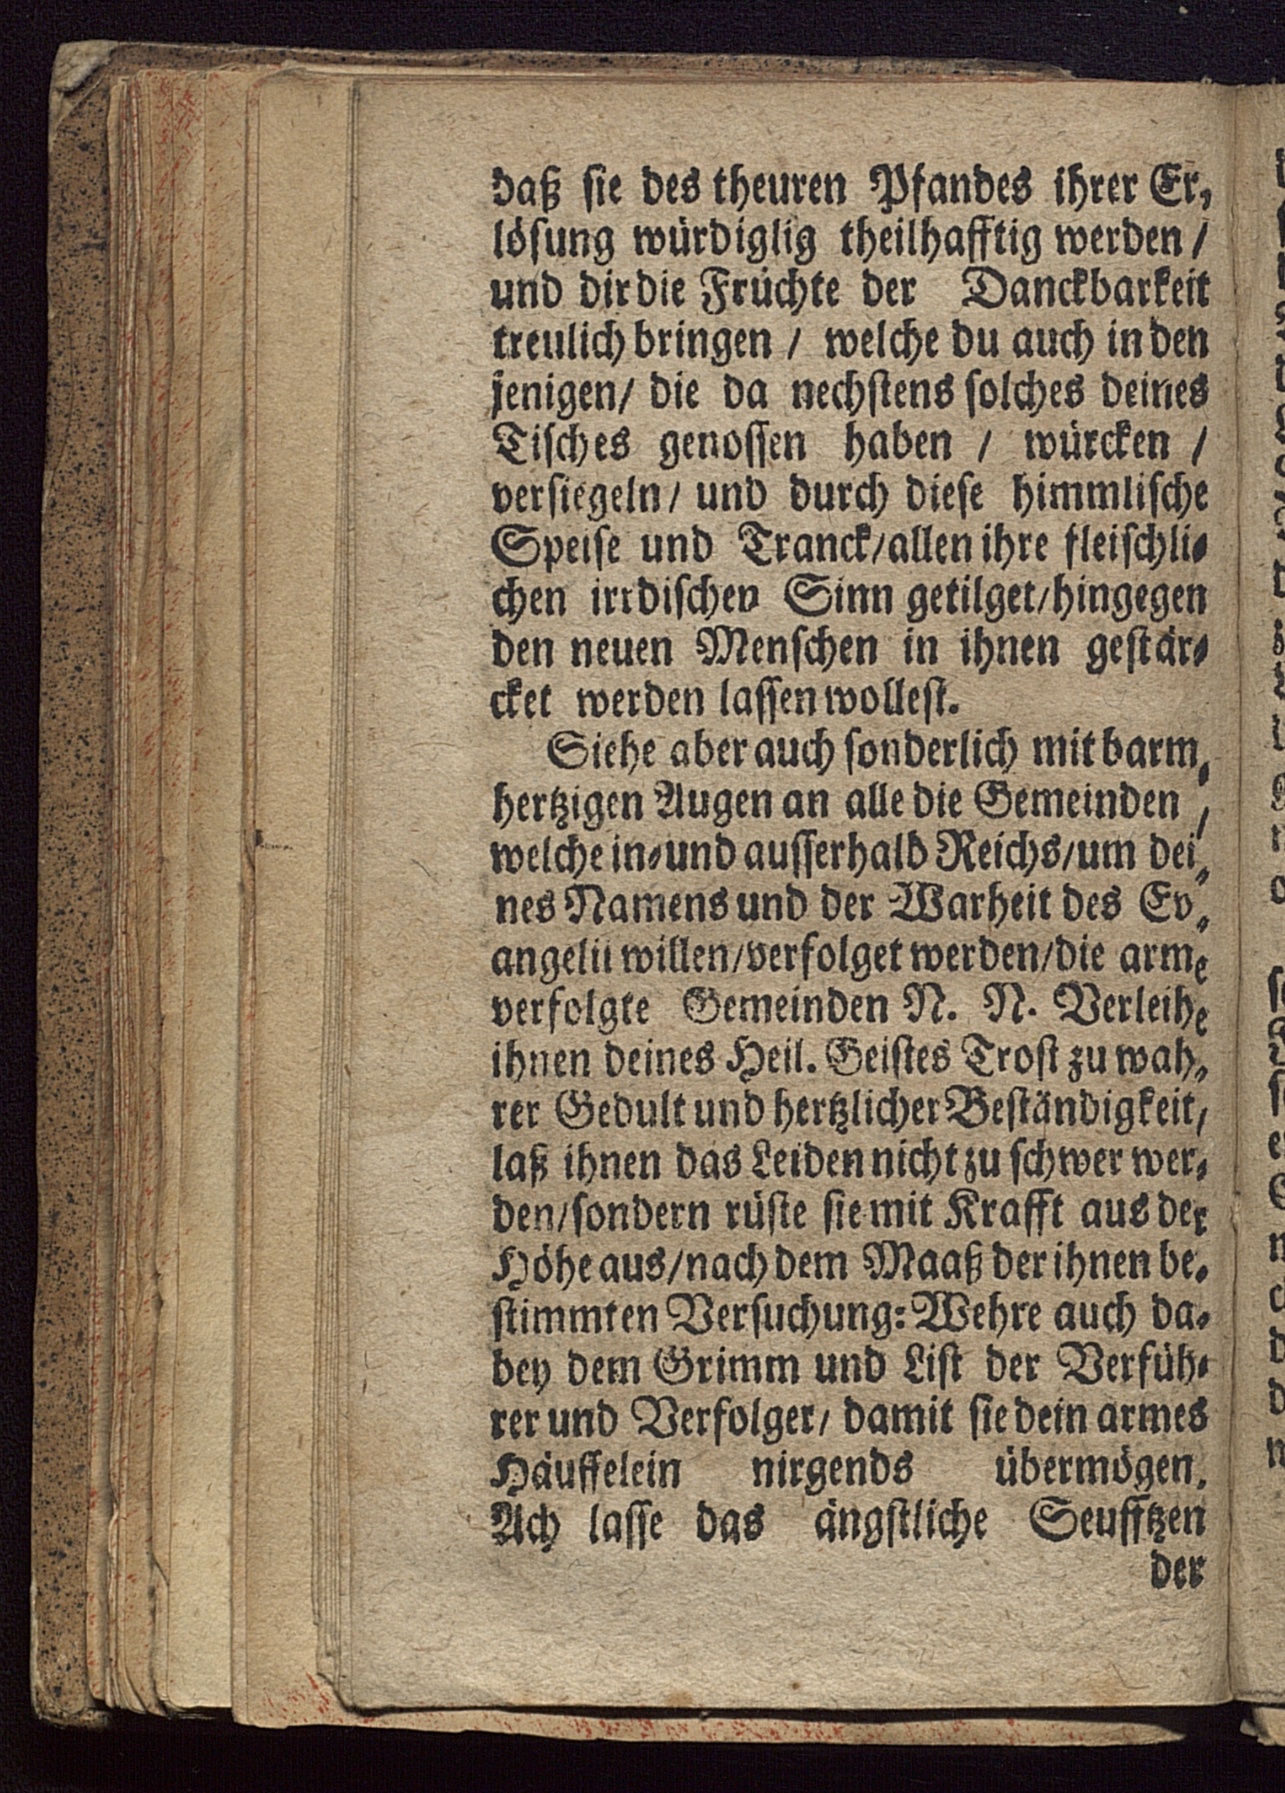 daß sie des theuren Pfandes ihrer Er-
lösung würdiglig theilhafftig werden /
und dir die Früchte der Danckbarkeit
treulich bringen / welche du auch in den
jenigen / die da nechstens solches deines
Tisches genossen haben / würcken /
versiegeln / und durch diese himmlische
Speise und Tranck / allen ihre fleischli-
chen irrdischen Sinn getilget / hingegen
den neuen Menschen in ihnen gestär-
cket werden lassen wollest.
Siehe aber auch sonderlich mit barm-
hertzigen Augen an alle die Gemeinden /
welche in- und ausserhalb Reichs / um dei-
nes Namens und der Warheit des Ev-
angelii willen / verfolget werden / die arme
verfolgte Gemeinden N. N. Verleihe
ihnen deines Heil. Geistes Trost zu wah-
rer Gedult und hertzlicher Beständigkeit /
laß ihnen das Leiden nicht zu schwer wer-
den / sondern rüste sie mit Krafft aus der
Höhe aus / nach dem Maaß der ihnen be-
stimmten Versuchung: Wehre auch da-
bey dem Grimm und List der Verfüh-
rer und Verfolger / damit sie dein armes
Häuffelein nirgends übermögen.
Ach lasse das ängstliche Seufftzen
der